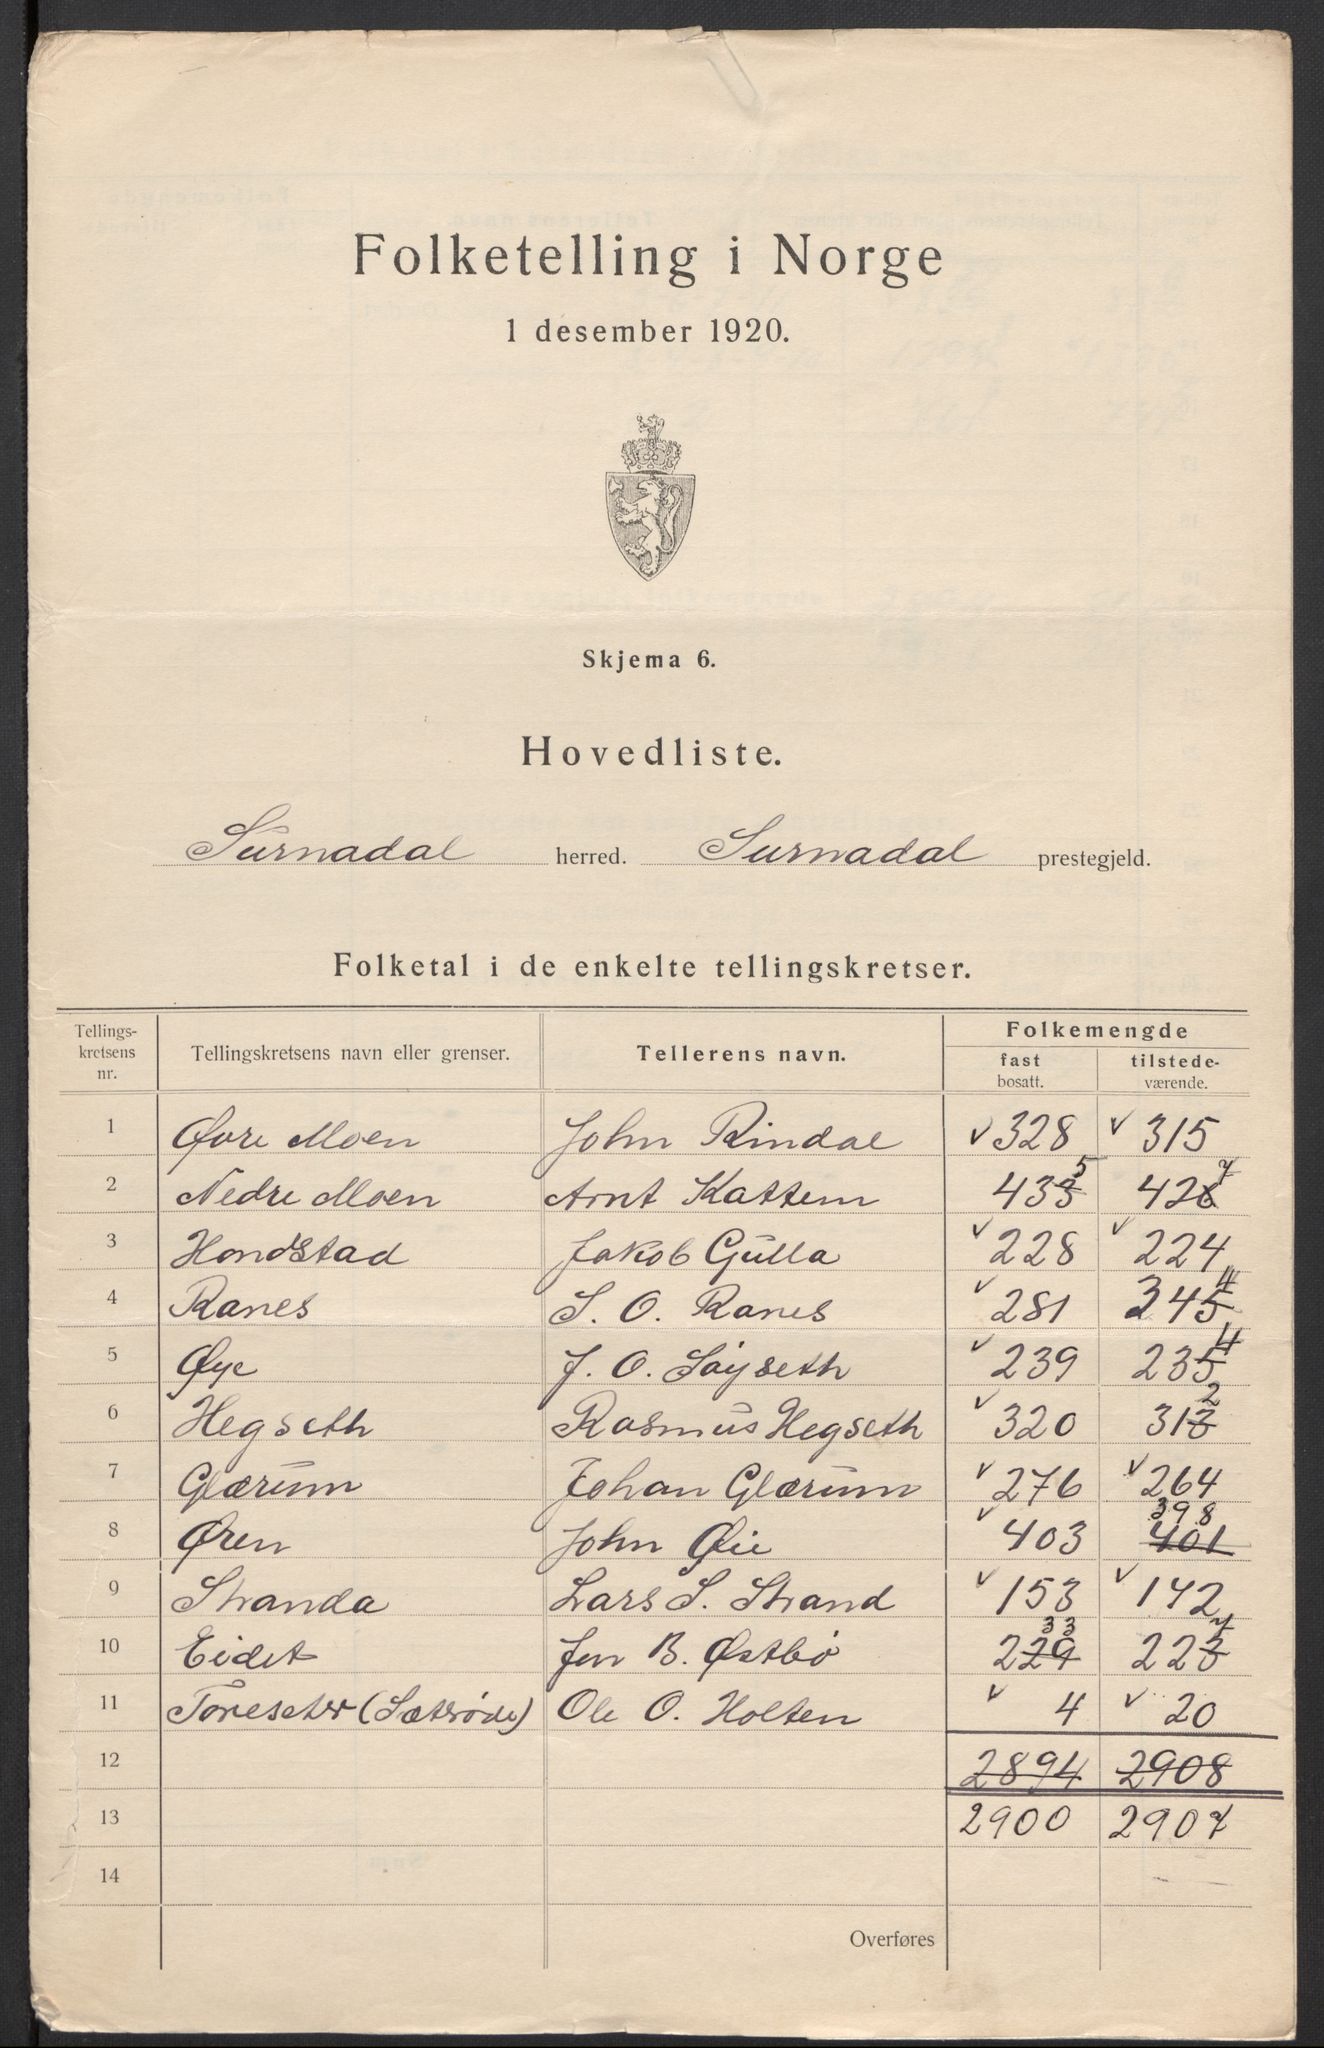 Folketelling i Norge
1 desember 1920.
Skjema 6.
Hovedliste.
Surnadal herred. Surnadal prestegjeld.
Folketal i de enkelte tellingskretser.
Tellings-kretsens nr. Tellingskretsens navn eller grenser. Tellerens navn. Folkemengde
fast bosatt. tilstede-værende.
1 Øvre Moen John Rindal √ 328 √ 315
5 7
2 Nedre Moen Arnt Kattem 433 428
3 Hondstad Jakob Gulla √ 228 √ 224
4
4 Ranes S. O. Ranes √ 281 345
4
5 Øye J. O. Søyseth √ 239 235
2
6 Hegseth Rasmus Hegseth √ 320 313
7 Glærum Johan Glærum √ 276 √ 264
398
8 Øren John Øie √ 403 401
9 Stranda Lars S. Strand √ 153 √ 142
33 7
10 Eidet Jon B. Østbø 229 223
11 (Sætrøde) Ole O. Holten √ 4 √ 20
12 2894 2908
13 2900 2907
14
Overføres